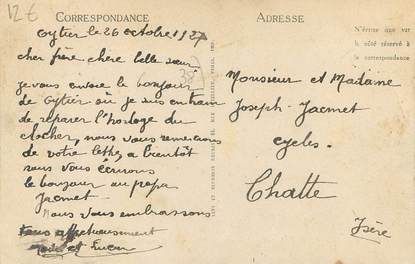 12€
CORRESPONDANCE
ADRESSE
Oytier le 26 octobre 1927
cher frère chère belle sœur
38
je vous envoie le bonjour
de Oytier ou je suis en train
de réparer l'horloge du
clocher, nous vous remercions
de votre lettre a bientôt
vous écrirons
le bonjour au papa
Jacmet
Nous vous embrassons
tous affectueusement
et Lucien
N'écrire que sur
le côté réservé à
la correspondance
Monsieur et Madame
Joseph Jacmet
cycles.
Chatte
Isère